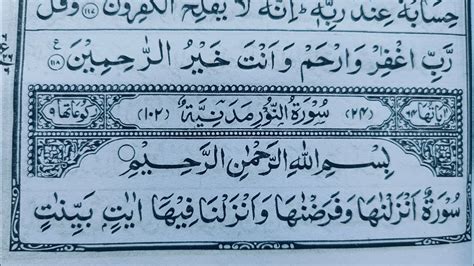 حِسَابُهٗ عِنْدَ رَبِّهٖ ؕ اِنَّهٗ لَا يُفْلِحُ الْكٰفِرُوْنَ ﴿۱۱۷﴾ وَقُلْ
رَّبِّ اغْفِرْ وَارْحَمْ وَاَنْتَ خَيْرُ الرّٰحِمِيْنَ ﴿۱۱۸﴾
اٰيَاتُهَا ۶۴ (۲۴) سُوْرَةُ النُّوْرِ مَدَنِيَّةٌ (۱۰۲) رُكُوْعَاتُهَا ۹
بِسْمِ اللهِ الرَّحْمٰنِ الرَّحِيْمِ
سُوْرَةٌ اَنْزَلْنٰهَا وَفَرَضْنٰهَا وَاَنْزَلْنَا فِيْهَاۤ اٰيٰتٍۭ بَيِّنٰتٍ